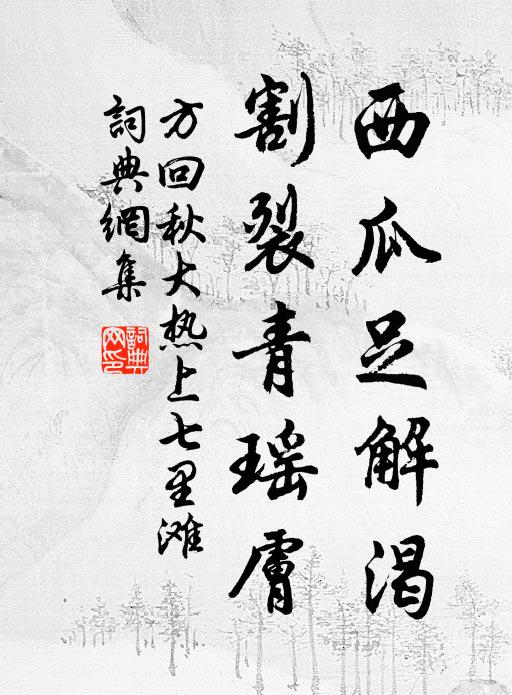 西瓜足解渴
割裂青瑶膚
方回秋大热上七里滩
詞典網集
詞典網印